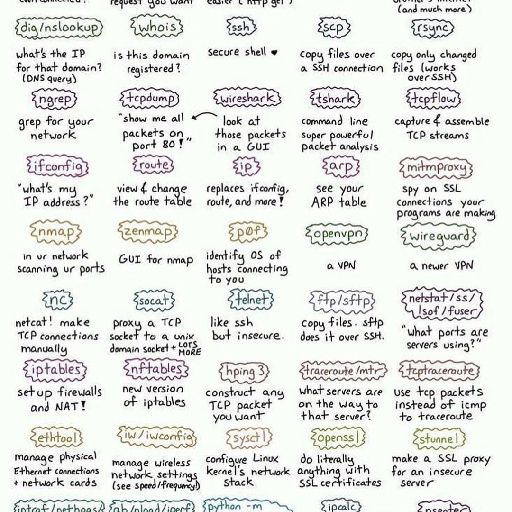 request you want
easier (http get)
(and much more)
dig/nslookup
what's the IP
for that domain?
(DNS query)
whois
is this domain
registered?
ssh
secure shell ♥
scp
copy files over
a SSH connection
rsync
copy only changed
files (works
over SSH)
ngrep
grep for your
network
tcpdump
"show me all
packets on
port 80!"
wireshark
look at
those packets
in a GUI
tshark
command line
super powerful
packet analysis
tcpflow
capture & assemble
TCP streams
ifconfig
"what's my
IP address?"
route
view & change
the route table
ip
replaces ifconfig,
route, and more!
arp
see your
ARP table
mitmproxy
spy on SSL
connections your
programs are making
nmap
in ur network
scanning ur ports
zenmap
GUI for nmap
p0f
identify OS of
hosts connecting
to you
openvpn
a VPN
wireguard
a newer VPN
nc
netcat! make
TCP connections
manually
socat
proxy a TCP
socket to a unix
domain socket + LOTS
MORE
telnet
like ssh
but insecure.
ftp/sftp
copy files. sftp
does it over SSH.
netstat/ss/
lsof/fuser
"what ports are
servers using?"
iptables
set up firewalls
and NAT!
nftables
new version
of iptables
hping3
construct any
TCP packet
you want
traceroute/mtr
what servers are
on the way to
that server?
tcptraceroute
use tcp packets
instead of icmp
to traceroute
ethtool
manage physical
Ethernet connections
+ network cards
iw/iwconfig
manage wireless
network settings
(see speed/frequency)
sysctl
configure Linux
kernel's network
stack
openssl
do literally
anything with
SSL certificates
stunnel
make a SSL proxy
for an insecure
server
python -m
ipcalc
nsenter